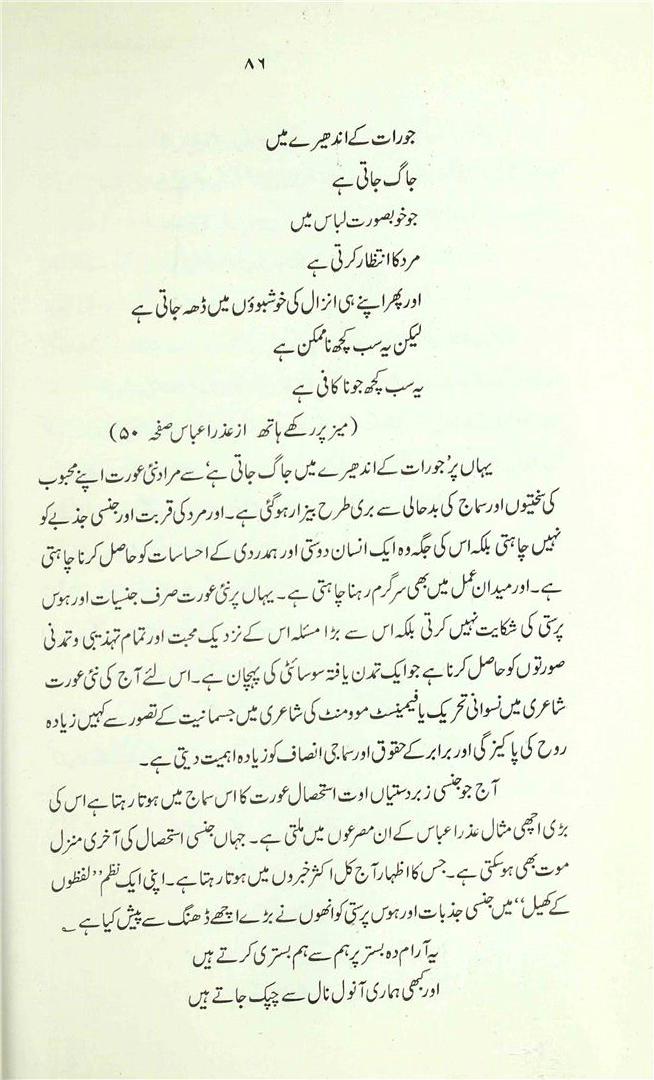 ۸۶
جو رات کے اندھیرے میں
جاگ جاتی ہے
جو خوبصورت لباس میں
مرد کا انتظار کرتی ہے
اور پھر اپنے ہی انزال کی خوشبوؤں میں ڈھہ جاتی ہے
لیکن یہ سب کچھ ناممکن ہے
یہ سب کچھ جو نا کافی ہے
(میز پر رکھے ہاتھ از عذرا عباس صفحہ ۵۰)
یہاں پر ’جو رات کے اندھیرے میں جاگ جاتی ہے‘ سے مراد نئی عورت اپنے محبوب
کی سختیوں اور سماج کی بدحالی سے بری طرح بیزار ہوگئی ہے۔ اور مرد کی قربت اور جنسی جذبے کو
نہیں چاہتی بلکہ اس کی جگہ وہ ایک انسان دوستی اور ہمدردی کے احساسات کو حاصل کرنا چاہتی
ہے۔ اور میدان عمل میں بھی سرگرم رہنا چاہتی ہے۔ یہاں پر نئی عورت صرف جنسیات اور ہوس
پرستی کی شکایت نہیں کرتی بلکہ اس سے بڑا مسئلہ اس کے نزدیک محبت اور تمام تہذیبی و تمدنی
صورتوں کو حاصل کرنا ہے جو ایک تمدن یافتہ سوسائٹی کی پہچان ہے۔ اس لئے آج کی نئی عورت
شاعری میں نسوانی تحریک یا فیمینسٹ موومنٹ کی شاعری میں جسمانیت کے تصور سے کہیں زیادہ
روح کی پاکیزگی اور برابر کے حقوق اور سماجی انصاف کو زیادہ اہمیت دیتی ہے۔
آج جو جنسی زبردستیاں اوت استحصال عورت کا اس سماج میں ہوتا رہتا ہے اس کی
بڑی اچھی مثال عذرا عباس کے ان مصرعوں میں ملتی ہے۔ جہاں جنسی استحصال کی آخری منزل
موت بھی ہوسکتی ہے۔ جس کا اظہار آج کل اکثر خبروں میں ہوتا رہتا ہے۔ اپنی ایک نظم ’’لفظوں
کے کھیل‘‘ میں جنسی جذبات اور ہوس پرستی کو انھوں نے بڑے اچھے ڈھنگ سے پیش کیا ہے ؎
یہ آرام دہ بستر پر ہم سے ہم بستری کرتے ہیں
اور کبھی ہماری آنول نال سے چپک جاتے ہیں